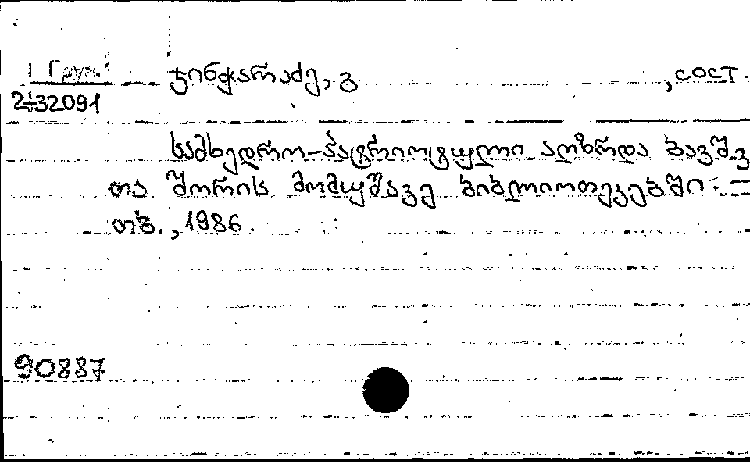 1 Груз. ჯინჭარაძე, გ , сост.
2-32091
სამხედრო-პატრიოტული აღზრდა ბავშვ-
თა შორის მომუშავე ბიბლიოთეკებში. —
თბ., 1986.
90887